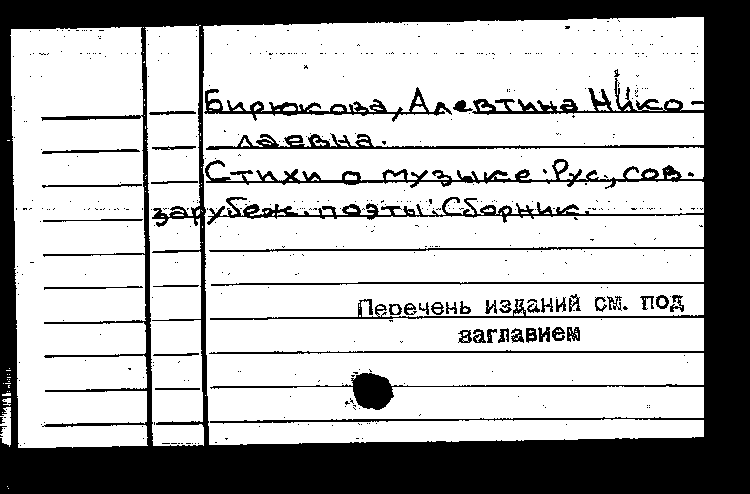 Бирюкова, Алевтина Нико-
лаевна.
Стихи о музыке: Рус., сов.
зарубеж. поэты: Сборник.
Перечень изданий см. под
заглавием